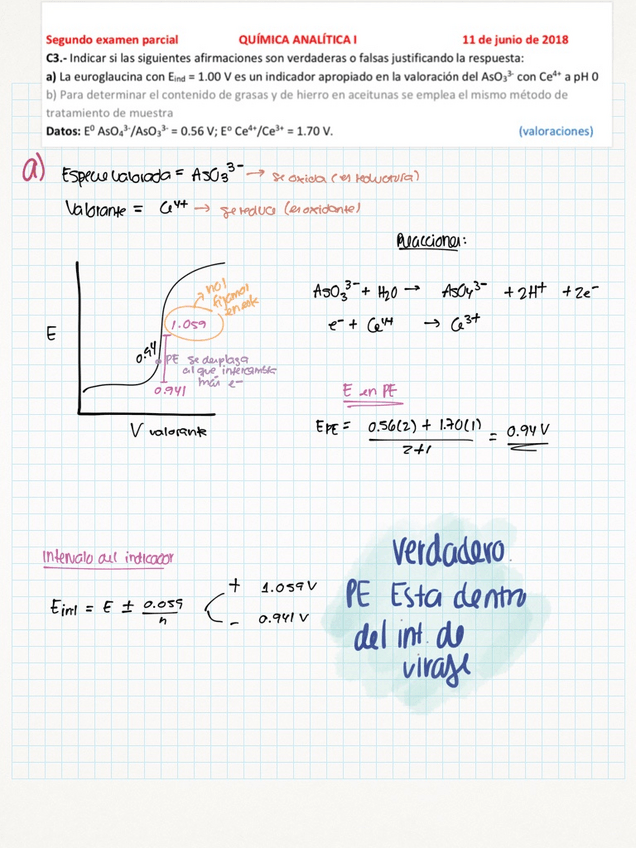 Segundo examen parcial QUÍMICA ANALÍTICA I 11 de junio de 2018
C3.- Indicar si las siguientes afirmaciones son verdaderas o falsas justificando la respuesta:
a) La euroglaucina con Eind = 1.00 V es un indicador apropiado en la valoración del AsO₃³⁻ con Ce⁴⁺ a pH 0
b) Para determinar el contenido de grasas y de hierro en aceitunas se emplea el mismo método de
tratamiento de muestra
Datos: E⁰ AsO₄³⁻/AsO₃³⁻ = 0.56 V; E⁰ Ce⁴⁺/Ce³⁺ = 1.70 V. (valoraciones)
a) Especie valorada = AsO₃³⁻ → se oxida (es reductora)
Valorante = Ce⁴⁺ → se reduce (es oxidante)
Reacciones:
AsO₃³⁻ + H₂O → AsO₄³⁻ + 2H⁺ + 2e⁻
e⁻ + Ce⁴⁺ → Ce³⁺
nos
fijamos
en este
1.059
E
0.94
PE se desplaza
al que intercambia
más e⁻
0.941
V valorante
E en PE
EPE = 0.56(2) + 1.70(1) / 2+1 = 0.94 V
Intervalo del indicador
Eint = E ± 0.059/n
+ 1.059 V
- 0.941 V
Verdadero.
PE Esta dentro
del int. de
viraje